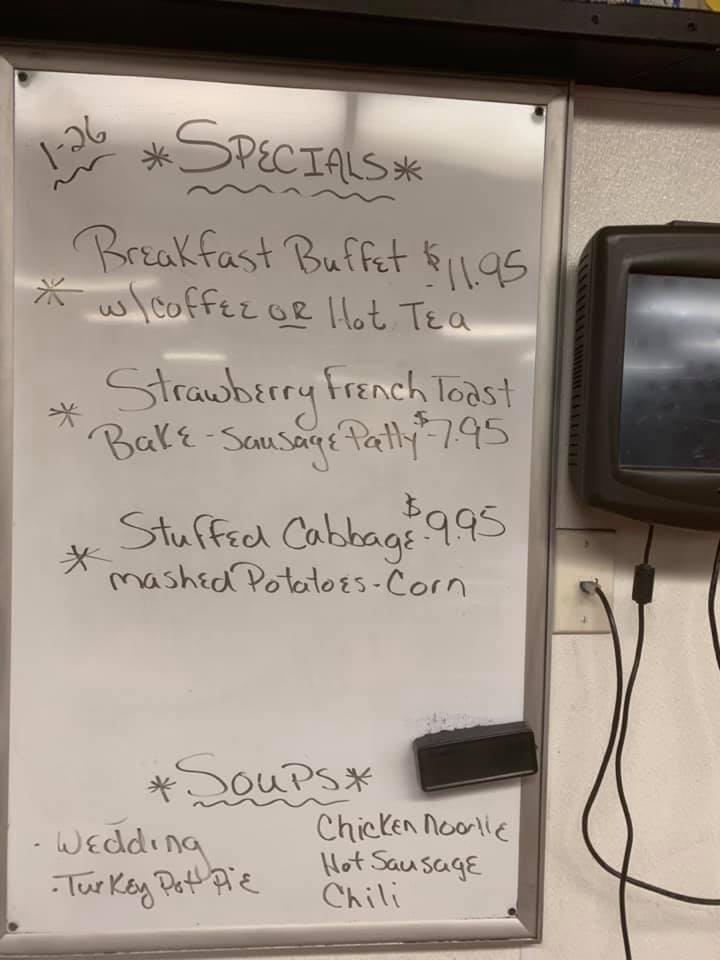 1-26 *SPECIALS*
Breakfast Buffet $11.95
* w/coffee OR Hot Tea
Strawberry French Toast
* Bake - Sausage Patty $7.95
Stuffed Cabbage $9.95
* mashed Potatoes - Corn
*Soups*
· Wedding
· Turkey Pot Pie
Chicken Noodle
Hot Sausage
Chili